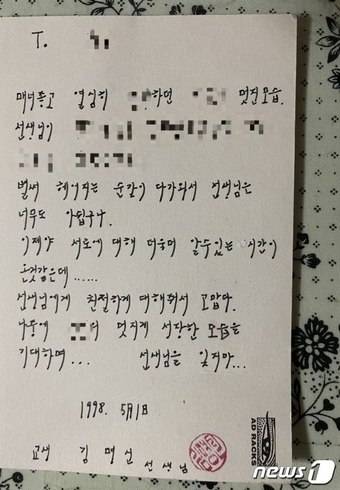 T.
매너좋고 열심히 하던 멋진모습.
선생님이
벌써 헤어지는 순간이 다가와서 선생님은
너무도 아쉽구나.
이제야 서로에 대해 더욱더 알수있는 시간이
온것같은데......
선생님에게 친절하게 대해줘서 고맙다.
나중에 멋지게 성장한 모습을
기대하며... 선생님을 잊지마...
1998. 5月1日
교생 김명신 선생님
AD RACKS
news1